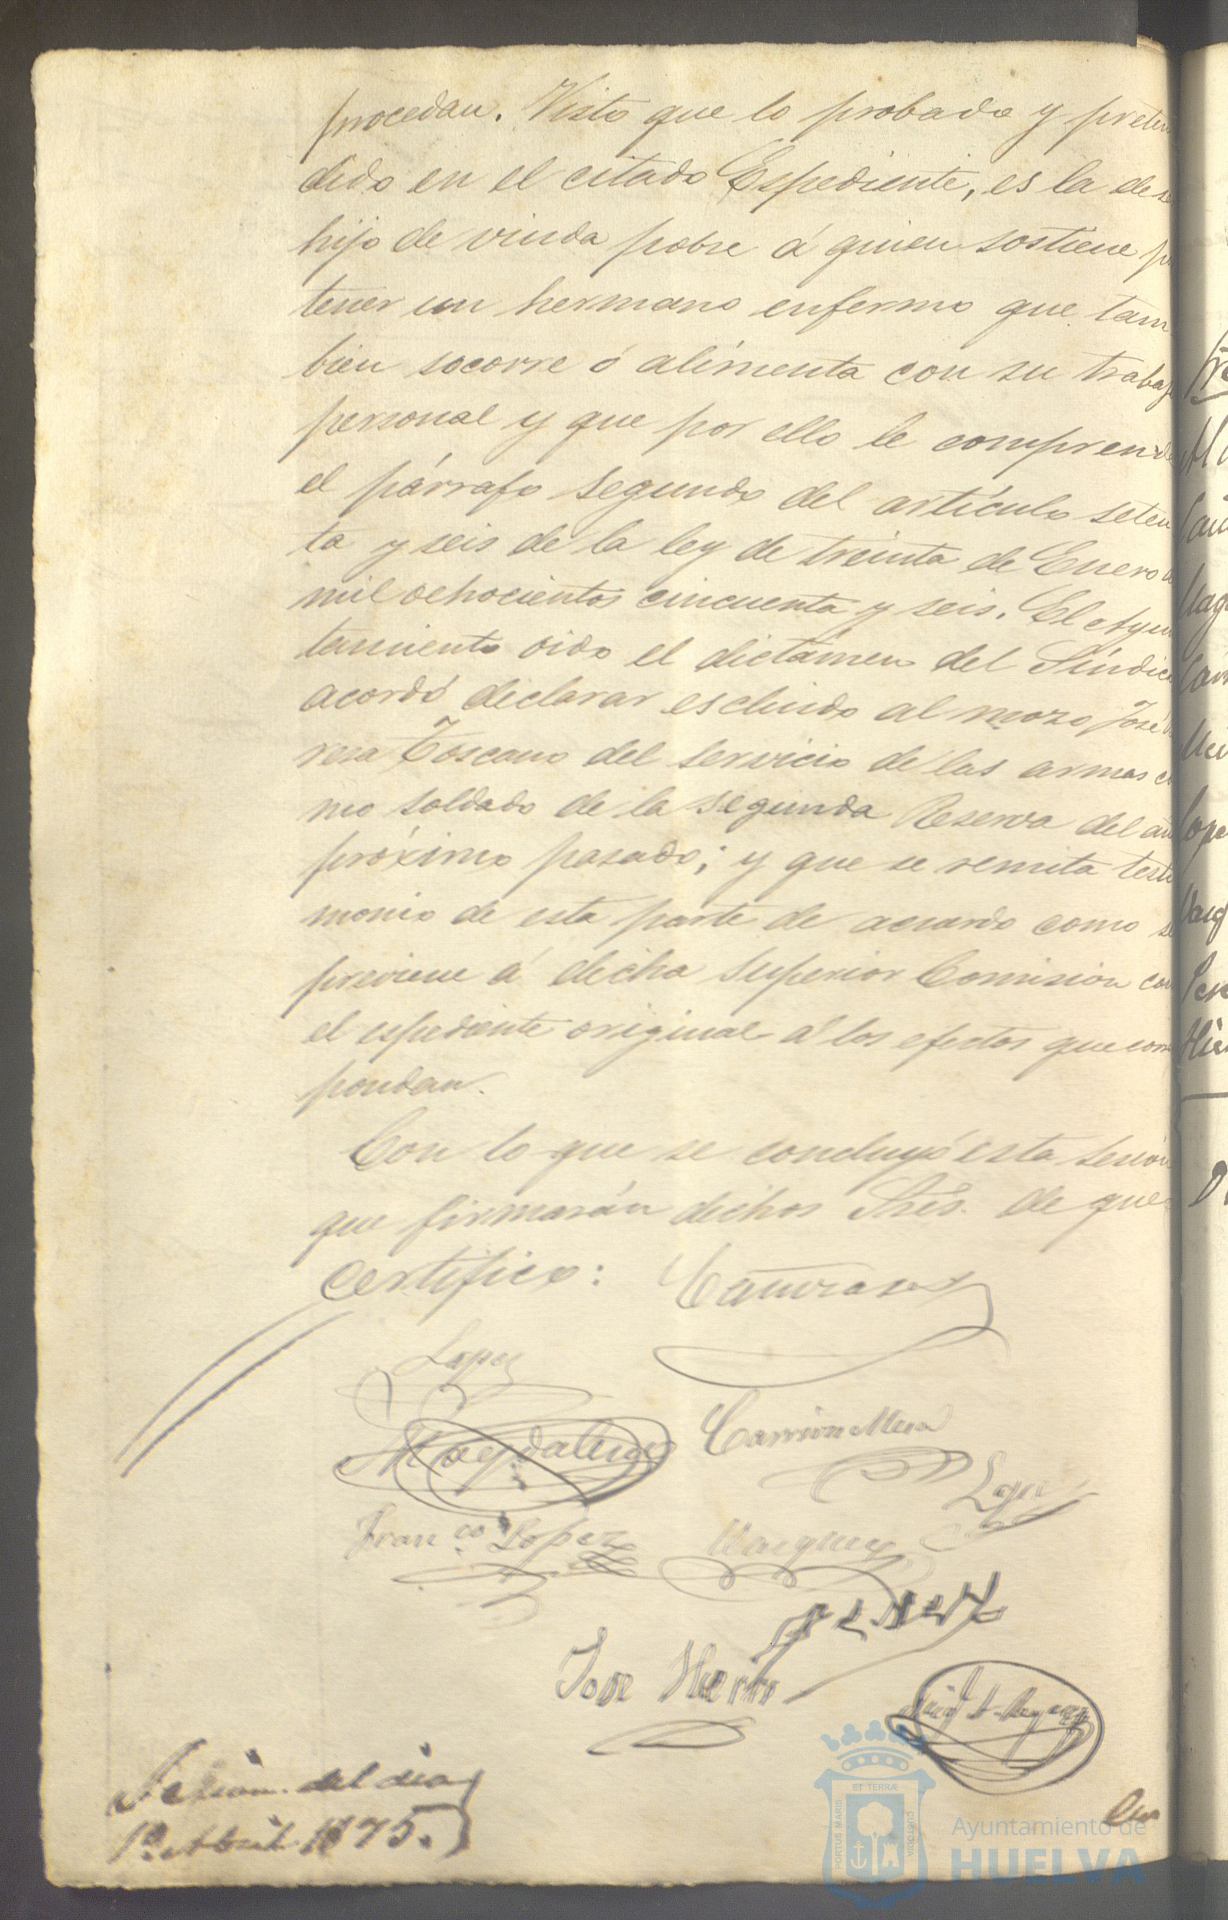 procedan. Visto que lo probado y preten
dido en el citado Espediente, es la de se
hijo de viuda pobre á quien sostiene p
tener un hermano enfermo que tam
bien socorre ó alimenta con su trabaj
personal y que por ello le comprende
el párrafo segundo del artículo seten
ta y seis de la ley de treinta de Enero d
mil ochocientos cincuenta y seis. El Ayun
tamiento oido el dictámen del Síndico
acordó declarar escluido al mozo José
resa Toscano del servicio de las armas co
mo soldado de la segunda Reserva del añ
próximo pasado; y que se remita testi
monio de esta parte de acuerdo como se
previene á dicha Superior Comision con
el espediente original á los efectos que corres
pondan.
Con lo que se concluyó esta sesión
que firmarán dichos Sres. de que
certifico:
Lopez
Magdaleno
Carrion Mesa
Lopez
Fran.co Lopez
Vazquez
Jose Hierro
Sesion del dia
1º Abril 1875.
PORTUS MARIS
ET TERRÆ
CUSTODIA
Ayuntamiento de
HUELVA